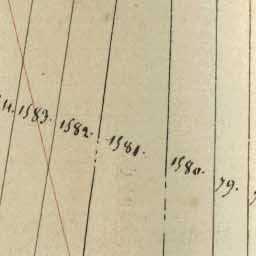 1583. 1582. 1581. 1580. 79.